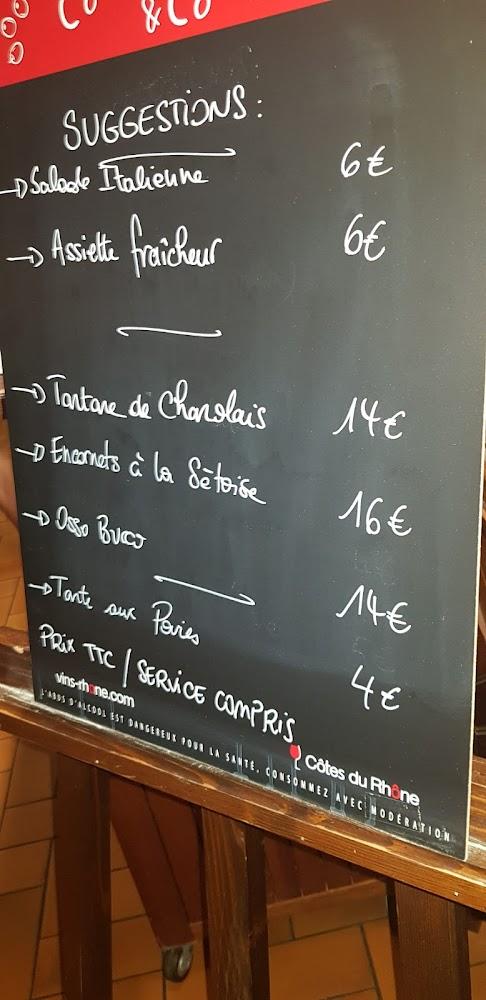 & Co
SUGGESTIONS :
→ Salade Italienne 6€
→ Assiette fraîcheur 6€
→ Tartare de Charolais 14€
→ Encornets à la Sètoise 16€
→ Osso Buco 14€
→ Tarte aux Poires 4€
PRIX TTC / SERVICE COMPRIS
vins-rhone.com
Côtes du Rhône
L'ABUS D'ALCOOL EST DANGEREUX POUR LA SANTÉ, CONSOMMEZ AVEC MODÉRATION